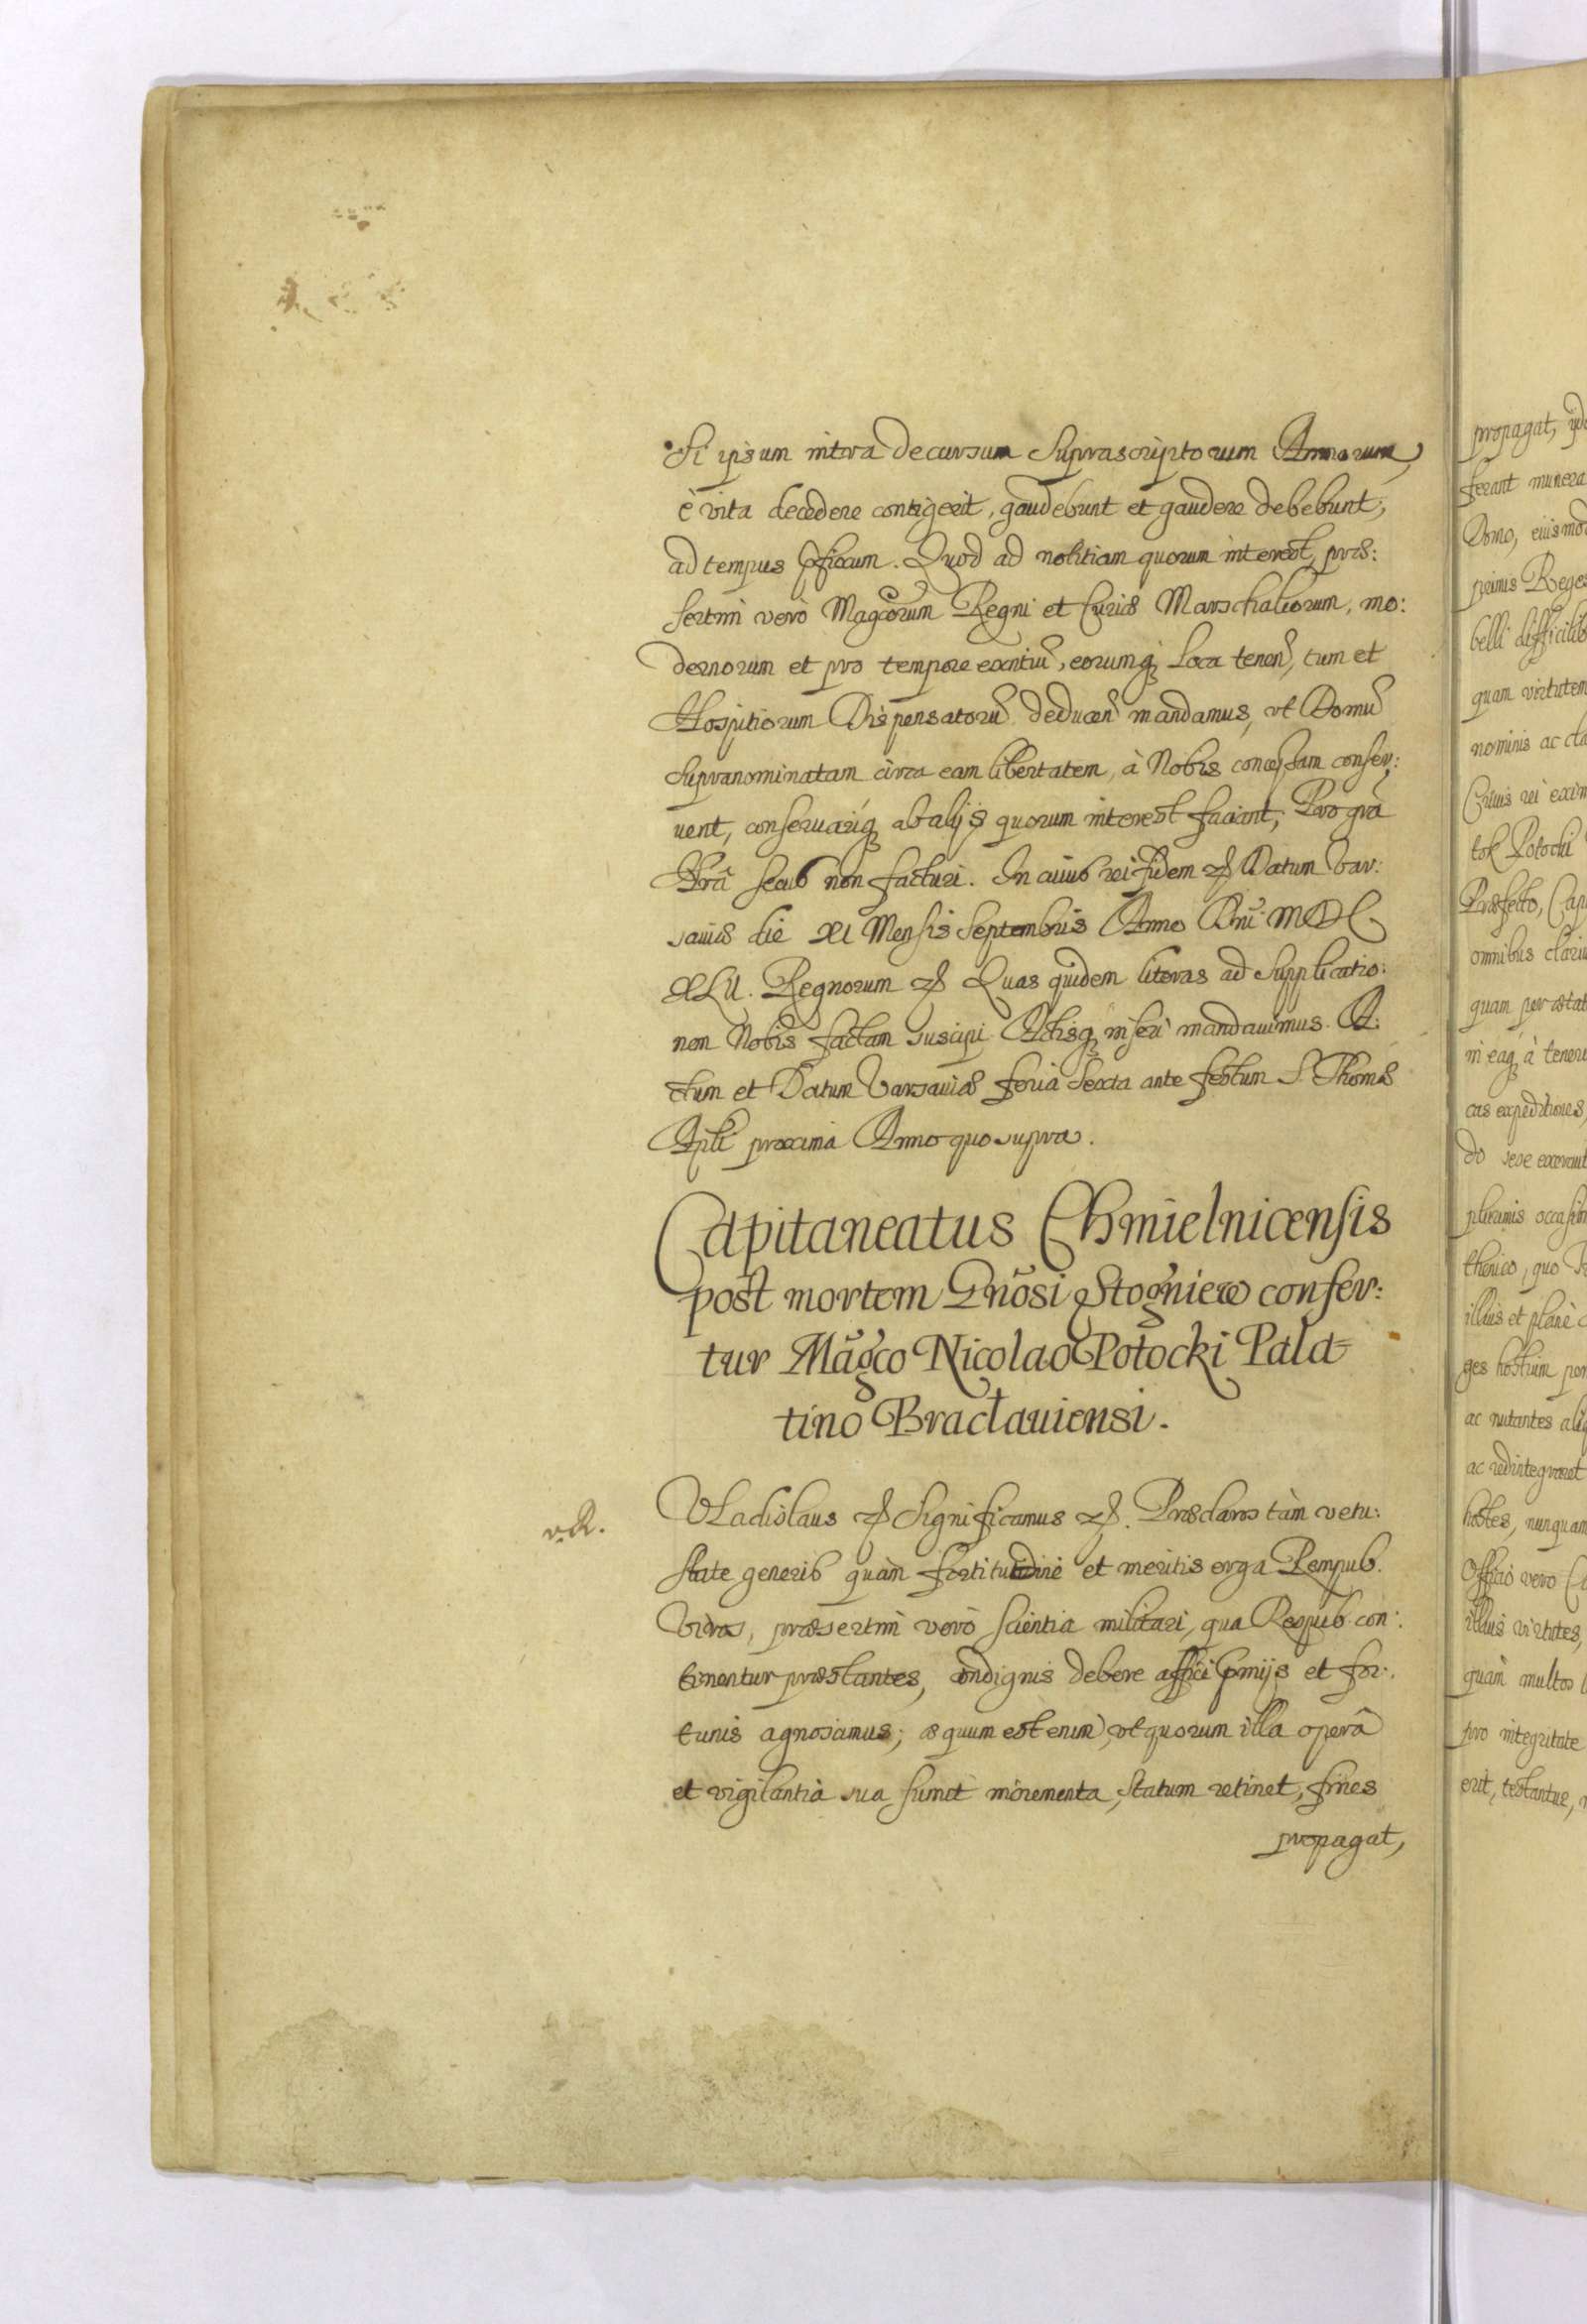 Si ipsum intra decursum suprascriptorum Annorum
è vita decedere contigerit, gaudebunt et gaudere debebunt,
ad tempus pfixum. Quod ad notitiam quorum interest, præ:
sertim verò Magcorum Regni et Curiæ Marschalcorum, mo:
dernorum et pro tempore exntiũ, eorumq; Loca tenen̄, tum et
Hospitiorum Dispensatorũ deducen̄ mandamus, vt Domũ
supranominatam circa eam libertatem, à Nobis concessam conser:
uent, conseruariq; ab alijs quorum interest faciant, Pro gra͂
Nra͂ secus non facturi. In cuius rei fidem etc Datum Var:
sauiæ die XI Mensis Septembris Anno Dni: MDC
XLII. Regnorum etc Quas quidem literas ad Supplicatio:
nem Nobis factam suscipi Actisq; inseri mandauimus. A:
ctum et Datum Varsauiæ feria Sexta ante festum S. Thomæ
Apli proxima Anno quo supra.
Capitaneatus Chmielnicensis
post mortem Gnõsi Stogniew confer:
tur Magco Nicolao Potocki Pala=
tino Bracłauiensi.
VLadislaus etc Significamus etc. Præclaros tàm vetu:
state generis quàm fortitudine et meritis erga Rempub.
Viros, præsertim verò scientia militari, qua Respub. con:
tinentur præstantes, condignis debere affici pmijs et for:
tunis agnoscimus; æquum est enim, vt quorum illa operâ
et vigilantia sua sumit incrementa, statum retinet, fines
propagat,
propagat,
ferant munera
Domo, eiusmod
primis Reges
belli difficilib
quam virtutem
nominis ac cla
Cuius rei exim
tok Potocki
Præfecto, Cap
omnibus clari
quam per ætat
in eaq; à tener
cas expeditiones,
do sese exerant
plurimis occasion
thenico, quo
illius et planè
ges hostium
ac nutantes aliq
ac redintegraret
hostes, nunquam
Officio vero
illius virtutes,
quàm multos
pro integritate
erit, testantur,